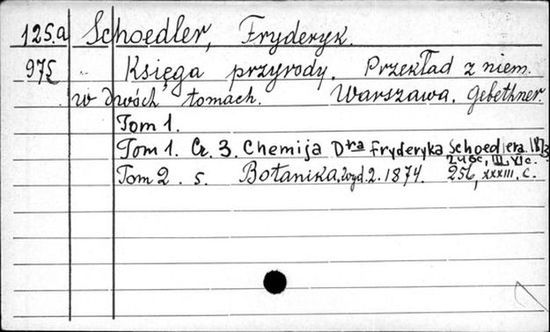 125.a Schoedler, Fryderyk.
975 " Księga przyrody. Przekład z niem.
w dwóch tomach. Warszawa. Gebethner.
Tom 1.
Tom 1. Cz. 3. Chemija Dra Fryderyka Schoedlera. 1873
III, VI c.
Tom 2. s. Botanika, wyd. 2. 1874. 256, XXXIII, c.